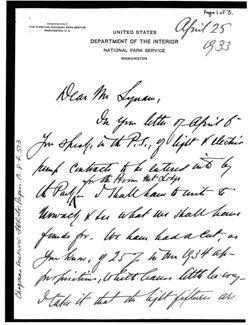 Page 1 of 3.
ADDRESS ONLY
THE DIRECTOR, NATIONAL PARK SERVICE
WASHINGTON, D. C.
UNITED STATES
DEPARTMENT OF THE INTERIOR
NATIONAL PARK SERVICE
WASHINGTON
April 25
1933
Dear Mr
In your letter of April 6
you speak, in the P.S., of light & electric
pump contracts to be entered into by
the Park for the Lodge
I shall have to wait to
& see what we shall have
funds for. We have had a cut, as
you know, of 25% in our 1934 ap-
propriations, which leaves little leeway.
I take it that the light fixtures are